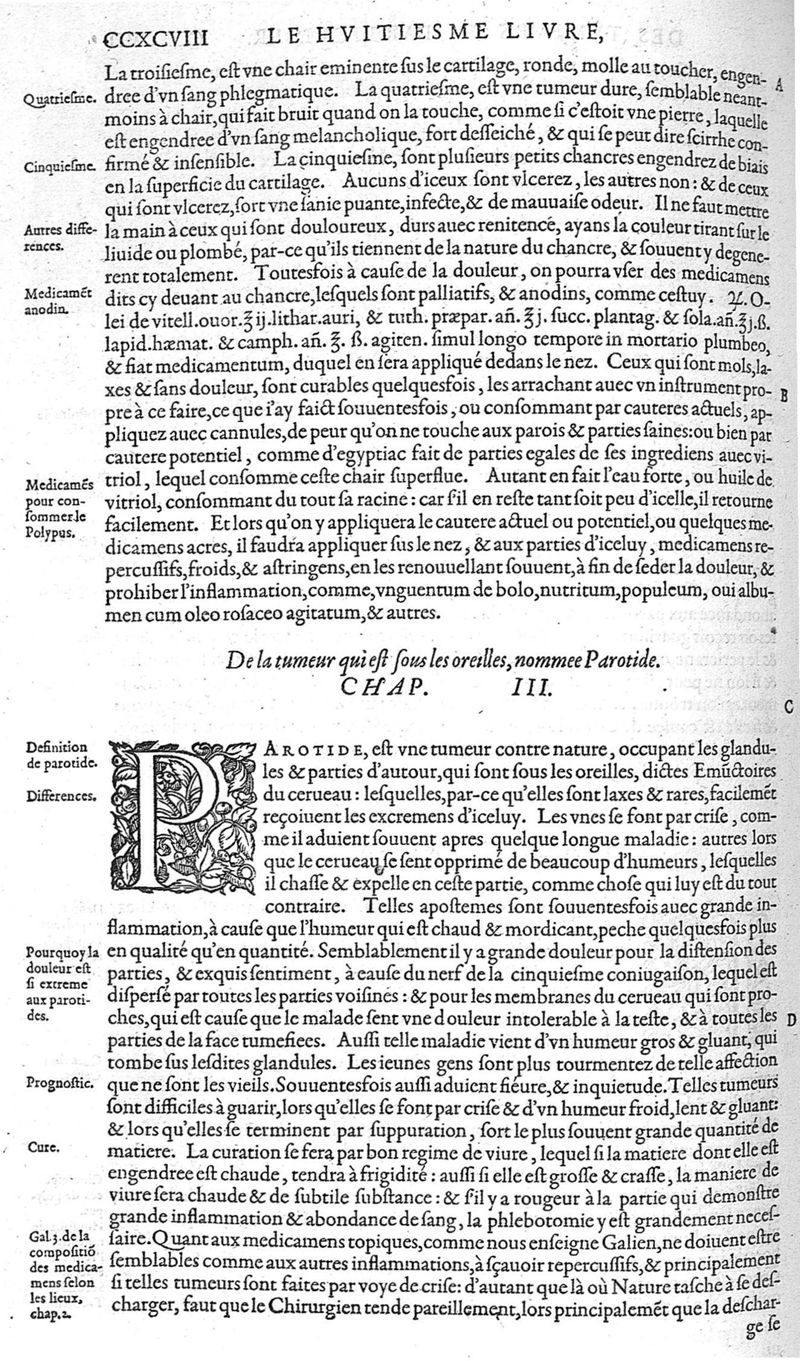 CCXCVIII LE HVITIESME LIVRE,
La troiſieſme, eſt vne chair eminente ſus le cartilage, ronde, molle au toucher, engen-
A
Quatrieſme.
dree d'vn ſang phlegmatique. La quatrieſme, eſt vne tumeur dure, ſemblable neant-
moins à chair, qui fait bruit quand on la touche, comme ſi c'eſtoit vne pierre, laquelle
eſt engendree d'vn ſang melancholique, fort deſſeiché, & qui ſe peut dire ſcirrhe con-
Cinquieſme.
firmé & inſenſible. La cinquieſme, ſont pluſieurs petits chancres engendrez de biais
en la ſuperficie du cartilage. Aucuns d'iceux ſont vlcerez, les autres non: & de ceux
qui ſont vlcerez, ſort vne ſanie puante, infecte, & de mauuaiſe odeur. Il ne faut mettre
Autres diffe-
rences.
la main à ceux qui ſont douloureux, durs auec renitence, ayans la couleur tirant ſur le
liuide ou plombé, par-ce qu'ils tiennent de la nature du chancre, & ſouuent y degene-
rent totalement. Toutesfois à cauſe de la douleur, on pourra vſer des medicamens
Medicamēt
anodin.
dits cy deuant au chancre, leſquels ſont palliatifs, & anodins, comme ceſtuy. ℞. O-
lei de vitell. ouor. ℥ij. lithar. auri, & tuth. præpar. añ. ℥j. ſucc. plantag. & ſola. añ. ℥j.ß.
lapid. hæmat. & camph. añ. ℥.ß. agiten. ſimul longo tempore in mortario plumbeo,
& fiat medicamentum, duquel en ſera appliqué dedans le nez. Ceux qui ſont mols, la-
xes & ſans douleur, ſont curables quelquesfois, les arrachant auec vn inſtrument pro-
B
pre à ce faire, ce que i'ay faict ſouuentesfois, ou conſommant par cauteres actuels, ap-
pliquez auec cannules, de peur qu'on ne touche aux parois & parties ſaines: ou bien par
cautere potentiel, comme d'egyptiac fait de parties egales de ſes ingrediens auec vi-
Medicamēs
pour con-
ſommer le
Polypus.
triol, lequel conſomme ceſte chair ſuperflue. Autant en fait l'eau forte, ou huile de
vitriol, conſommant du tout ſa racine: car ſ'il en reſte tant ſoit peu d'icelle, il retourne
facilement. Et lors qu'on y appliquera le cautere actuel ou potentiel, ou quelques me-
dicamens acres, il faudra appliquer ſus le nez, & aux parties d'iceluy, medicamens re-
percuſſifs, froids, & aſtringens, en les renouuellant ſouuent, à fin de ſeder la douleur, &
prohiber l'inflammation, comme, vnguentum de bolo, nutritum, populeum, oui albu-
men cum oleo roſaceo agitatum, & autres.
De la tumeur qui eſt ſous les oreilles, nommee Parotide.
CHAP. III.
C
Definition
de parotide.
Differences.
PAROTIDE, eſt vne tumeur contre nature, occupant les glandu-
les & parties d'autour, qui ſont ſous les oreilles, dictes Emūctoires
du cerueau: leſquelles, par-ce qu'elles ſont laxes & rares, facilemēt
reçoiuent les excremens d'iceluy. Les vnes ſe font par criſe, com-
me il aduient ſouuent apres quelque longue maladie: autres lors
que le cerueau ſe ſent opprimé de beaucoup d'humeurs, leſquelles
il chaſſe & expelle en ceſte partie, comme choſe qui luy eſt du tout
contraire. Telles apoſtemes ſont ſouuentesfois auec grande in-
flammation, à cauſe que l'humeur qui eſt chaud & mordicant, peche quelquesfois plus
Pourquoy la
douleur eſt
ſi extreme
aux paroti-
des.
en qualité qu'en quantité. Semblablement il y a grande douleur pour la diſtenſion des
parties, & exquis ſentiment, à cauſe du nerf de la cinquieſme coniugaiſon, lequel eſt
diſperſé par toutes les parties voiſines: & pour les membranes du cerueau qui ſont pro-
ches, qui eſt cauſe que le malade ſent vne douleur intolerable à la teſte, & à toutes les
D
parties de la face tumefiees. Auſſi telle maladie vient d'vn humeur gros & gluant, qui
tombe ſus leſdites glandules. Les ieunes gens ſont plus tourmentez de telle affection
Prognoſtic.
que ne ſont les vieils. Souuentesfois auſſi aduient fiéure, & inquietude. Telles tumeurs
ſont difficiles à guarir, lors qu'elles ſe font par criſe & d'vn humeur froid, lent & gluant:
& lors qu'elles ſe terminent par ſuppuration, ſort le plus ſouuent grande quantité de
Cure.
matiere. La curation ſe fera par bon regime de viure, lequel ſi la matiere dont elle eſt
engendree eſt chaude, tendra à frigidité: auſſi ſi elle eſt groſſe & craſſe, la maniere de
viure ſera chaude & de ſubtile ſubſtance: & ſ'il y a rougeur à la partie qui demonſtre
grande inflammation & abondance de ſang, la phlebotomie y eſt grandement neceſ-
Gal. 3. de la
compoſitiō
des medica-
mens ſelon
les lieux,
chap. 2.
ſaire. Quant aux medicamens topiques, comme nous enſeigne Galien, ne doiuent eſtre
ſemblables comme aux autres inflammations, à ſçauoir repercuſſifs, & principalement
ſi telles tumeurs ſont faites par voye de criſe: d'autant que là où Nature taſche à ſe deſ-
charger, faut que le Chirurgien tende pareillement, lors principalemēt que la deſchar-
ge ſe